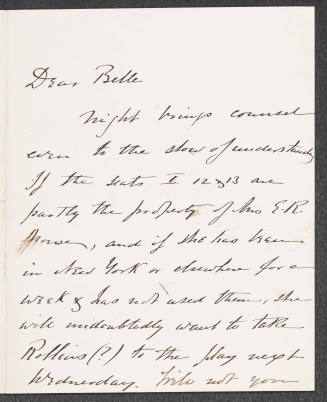 Dear Belle
Night brings counsel
even to the slow of understanding
If the seats I 12 & 13 are
partly the property of Mrs E.R.
Morse, and if she has been
in New York or elsewhere for a
week & has not used them, she
will undoubtedly want to take
Rollins (?) to the play next
Wednesday. Will not you